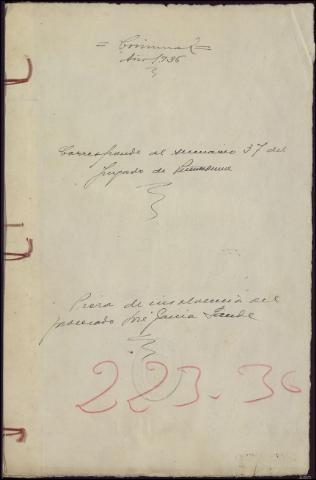 = Criminal =
Año 1936
Corresponde al sumario 37 del
Juzgado de
Pieza de insolvencia del
procesado José García
223.36